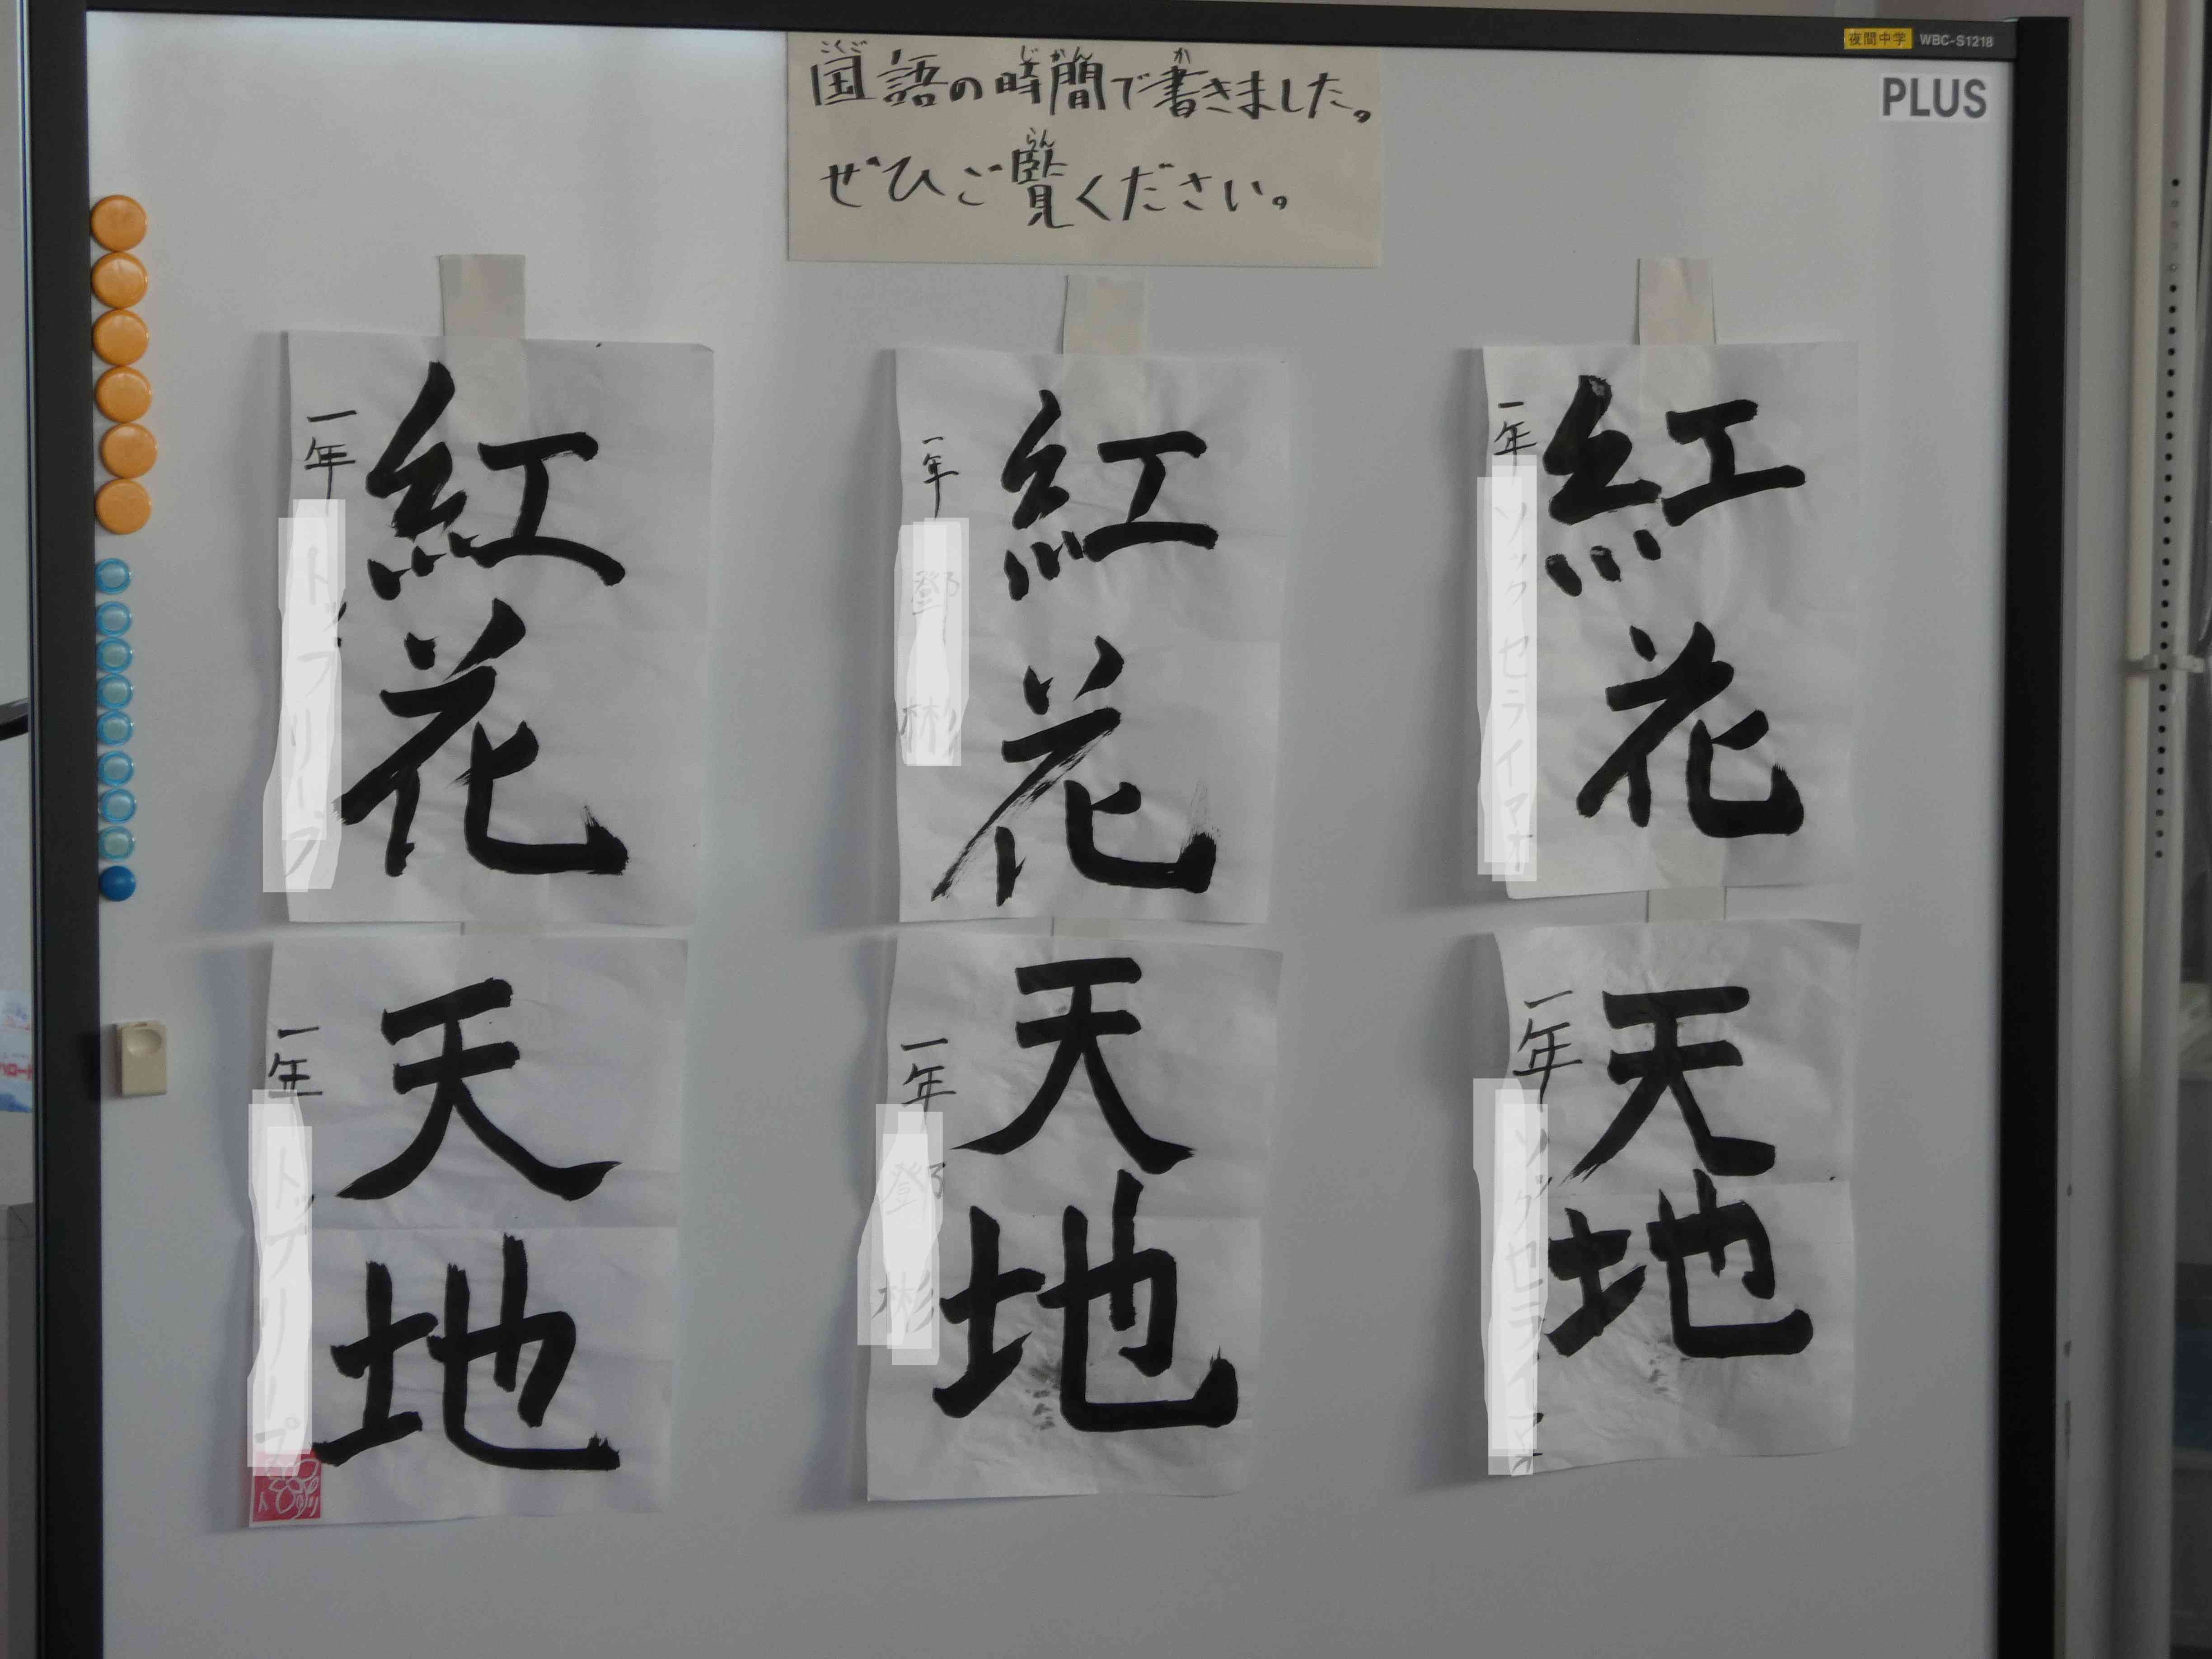 夜間中学 WBC-S1218
PLUS
国語の時間で書きました。
ぜひご覧ください。
紅花
一年
紅花
一年
紅花
一年
天地
一年
天地
一年
天地
一年